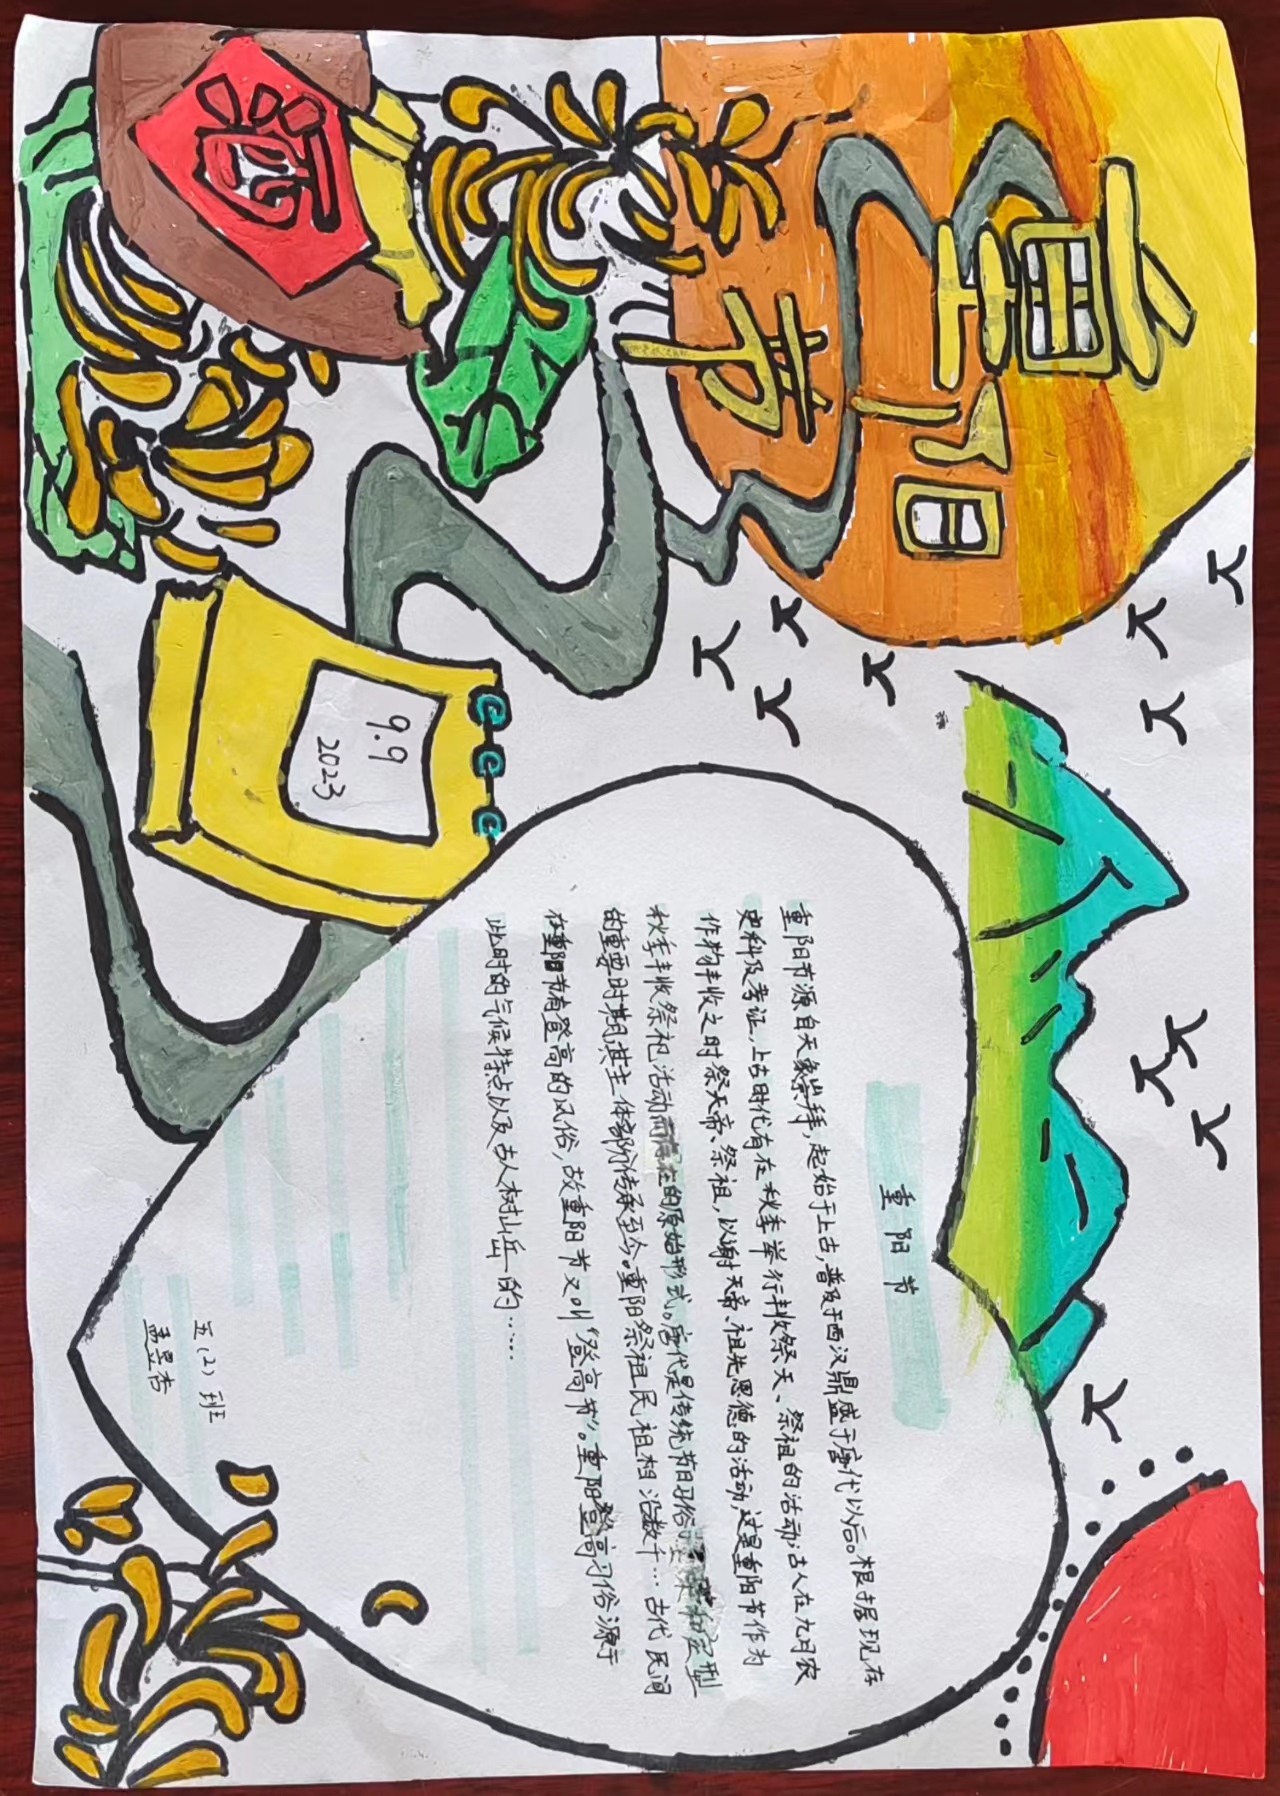 重阳节
酒
9.9
2023
重阳节
重阳节源自天象崇拜,起始于上古,普及于西汉鼎盛于唐代以后。根据现存
史料及考证,上古时代有在秋季举行丰收祭天、祭祖的活动;古人在九月农
作物丰收之时祭天帝、祭祖,以谢天帝、祖先恩德的活动,这是重阳节作为
秋季丰收祭祀活动而存在的原始形式。唐代是传统节日习俗 和定型
的重要时期,其主体部份传承至今。重阳祭祖民祖相沿数千…古代民间
在重阳节有登高的风俗,故重阳节又叫“登高节”。重阳登高习俗源于
此时的气候特点以及古人树山岳的……
五(2)班